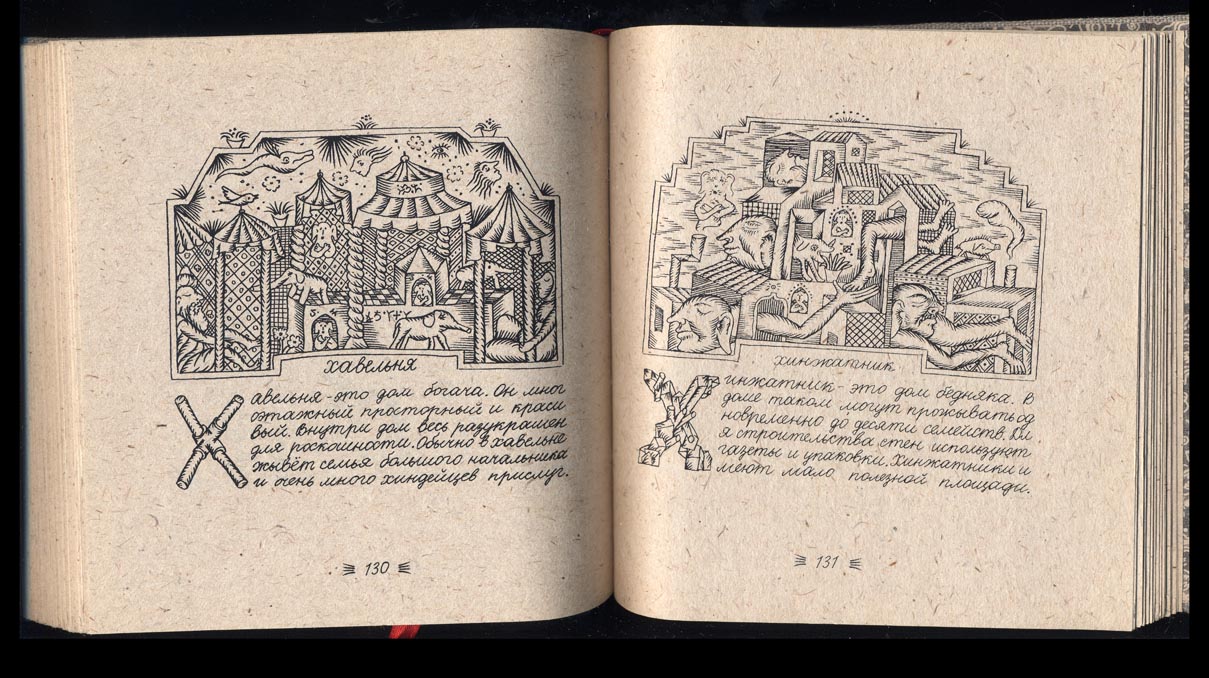 хавельня
Хавельня - это дом богача. Он мног
оэтажный просторный и краси
вый. Внутри дом весь разукрашен
для роскошности. Обычно в хавельне
живёт семья большого начальника
и очень много хиндейцев прислуг.
130
хинжатник
Хинжатник - это дом бедняка. В
доме таком могут проживать од
новременно до десяти семейств. Дл
я строительства стен используют
газеты и упаковки. Хинжатники и
меют мало полезной площади.
131